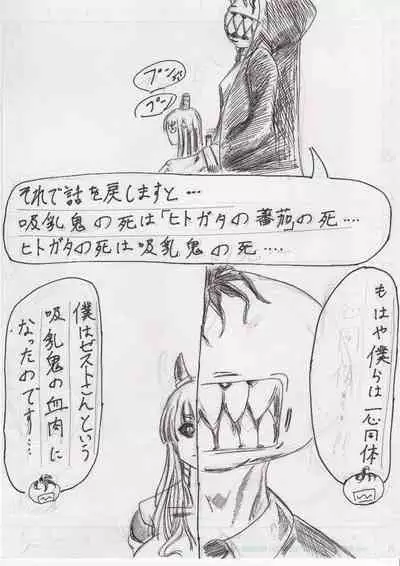 プンプン
プン
それで話を戻しますと…
吸乳鬼の死は「ヒトガタの蕃茄」の死….
ヒトガタの死は吸乳鬼の死….
もはや僕らは一心同体
僕はゼストさんという
吸乳鬼の血肉に
なったのです…